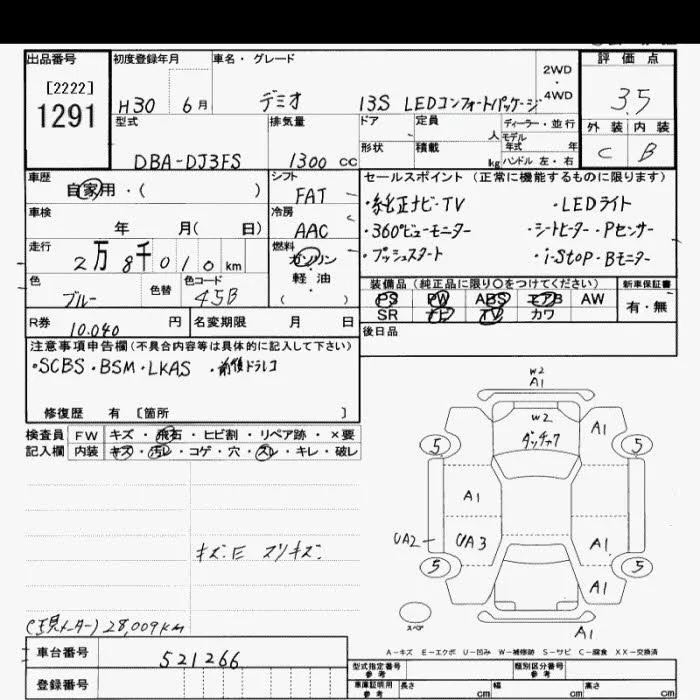 出品番号 初度登録年月 車名・グレード 評価点
[2222]
1291
H30 6月 デミオ 13S LEDコンフォートパッケージ
2WD
4WD
3.5
型式 排気量 ドア 定員 人 ディーラー・並行
モデル
年式 年
外装 内装
DBA-DJ3FS 1300 CC 形状 積載 kg ハンドル 左・右
C B
車歴 自家用・( ) シフト FAT
セールスポイント (正常に機能するものに限ります)
車検 年 月( 日) 冷房 AAC
・純正ナビ・TV ・LEDライト
・360°ビューモニター ・シートヒーター・Pセンサー
・プッシュスタート ・i-stop・Bモニター
走行 2万8千010km 燃料 ガソリン
軽・油
( )
色 ブルー 色替 色コード 45B
装備品 (純正品に限り○をつけてください) 新車保証書
PS PW ABS エアB AW 有・無
SR ナビ TV カワ
R券 10.040 円 名変期限 月 日
後日品
注意事項申告欄(不具合内容等は具体的に記入して下さい)
・SCBS・BSM・LKAS ・前後ドラレコ
修復歴 有 〔箇所 〕
検査員 FW キズ・飛石・ヒビ割・リペア跡・×要
記入欄 内装 キズ・汚レ・コゲ・穴・スレ・キレ・破レ
キズ.E スリキズ.
(現メーター)28,009km
W2
A1
W2
A1
5 5
A1
UA2 UA3 A1
5 5
A1
スペア
A1
A-キズ E-エクボ U-凹み W-補修跡 S-サビ C-腐食 XX-交換済
車台番号 521266
登録番号
型式指定番号
参考
類別区分番号
参考
車庫証明用
参考
長さ cm 幅 cm 高さ cm